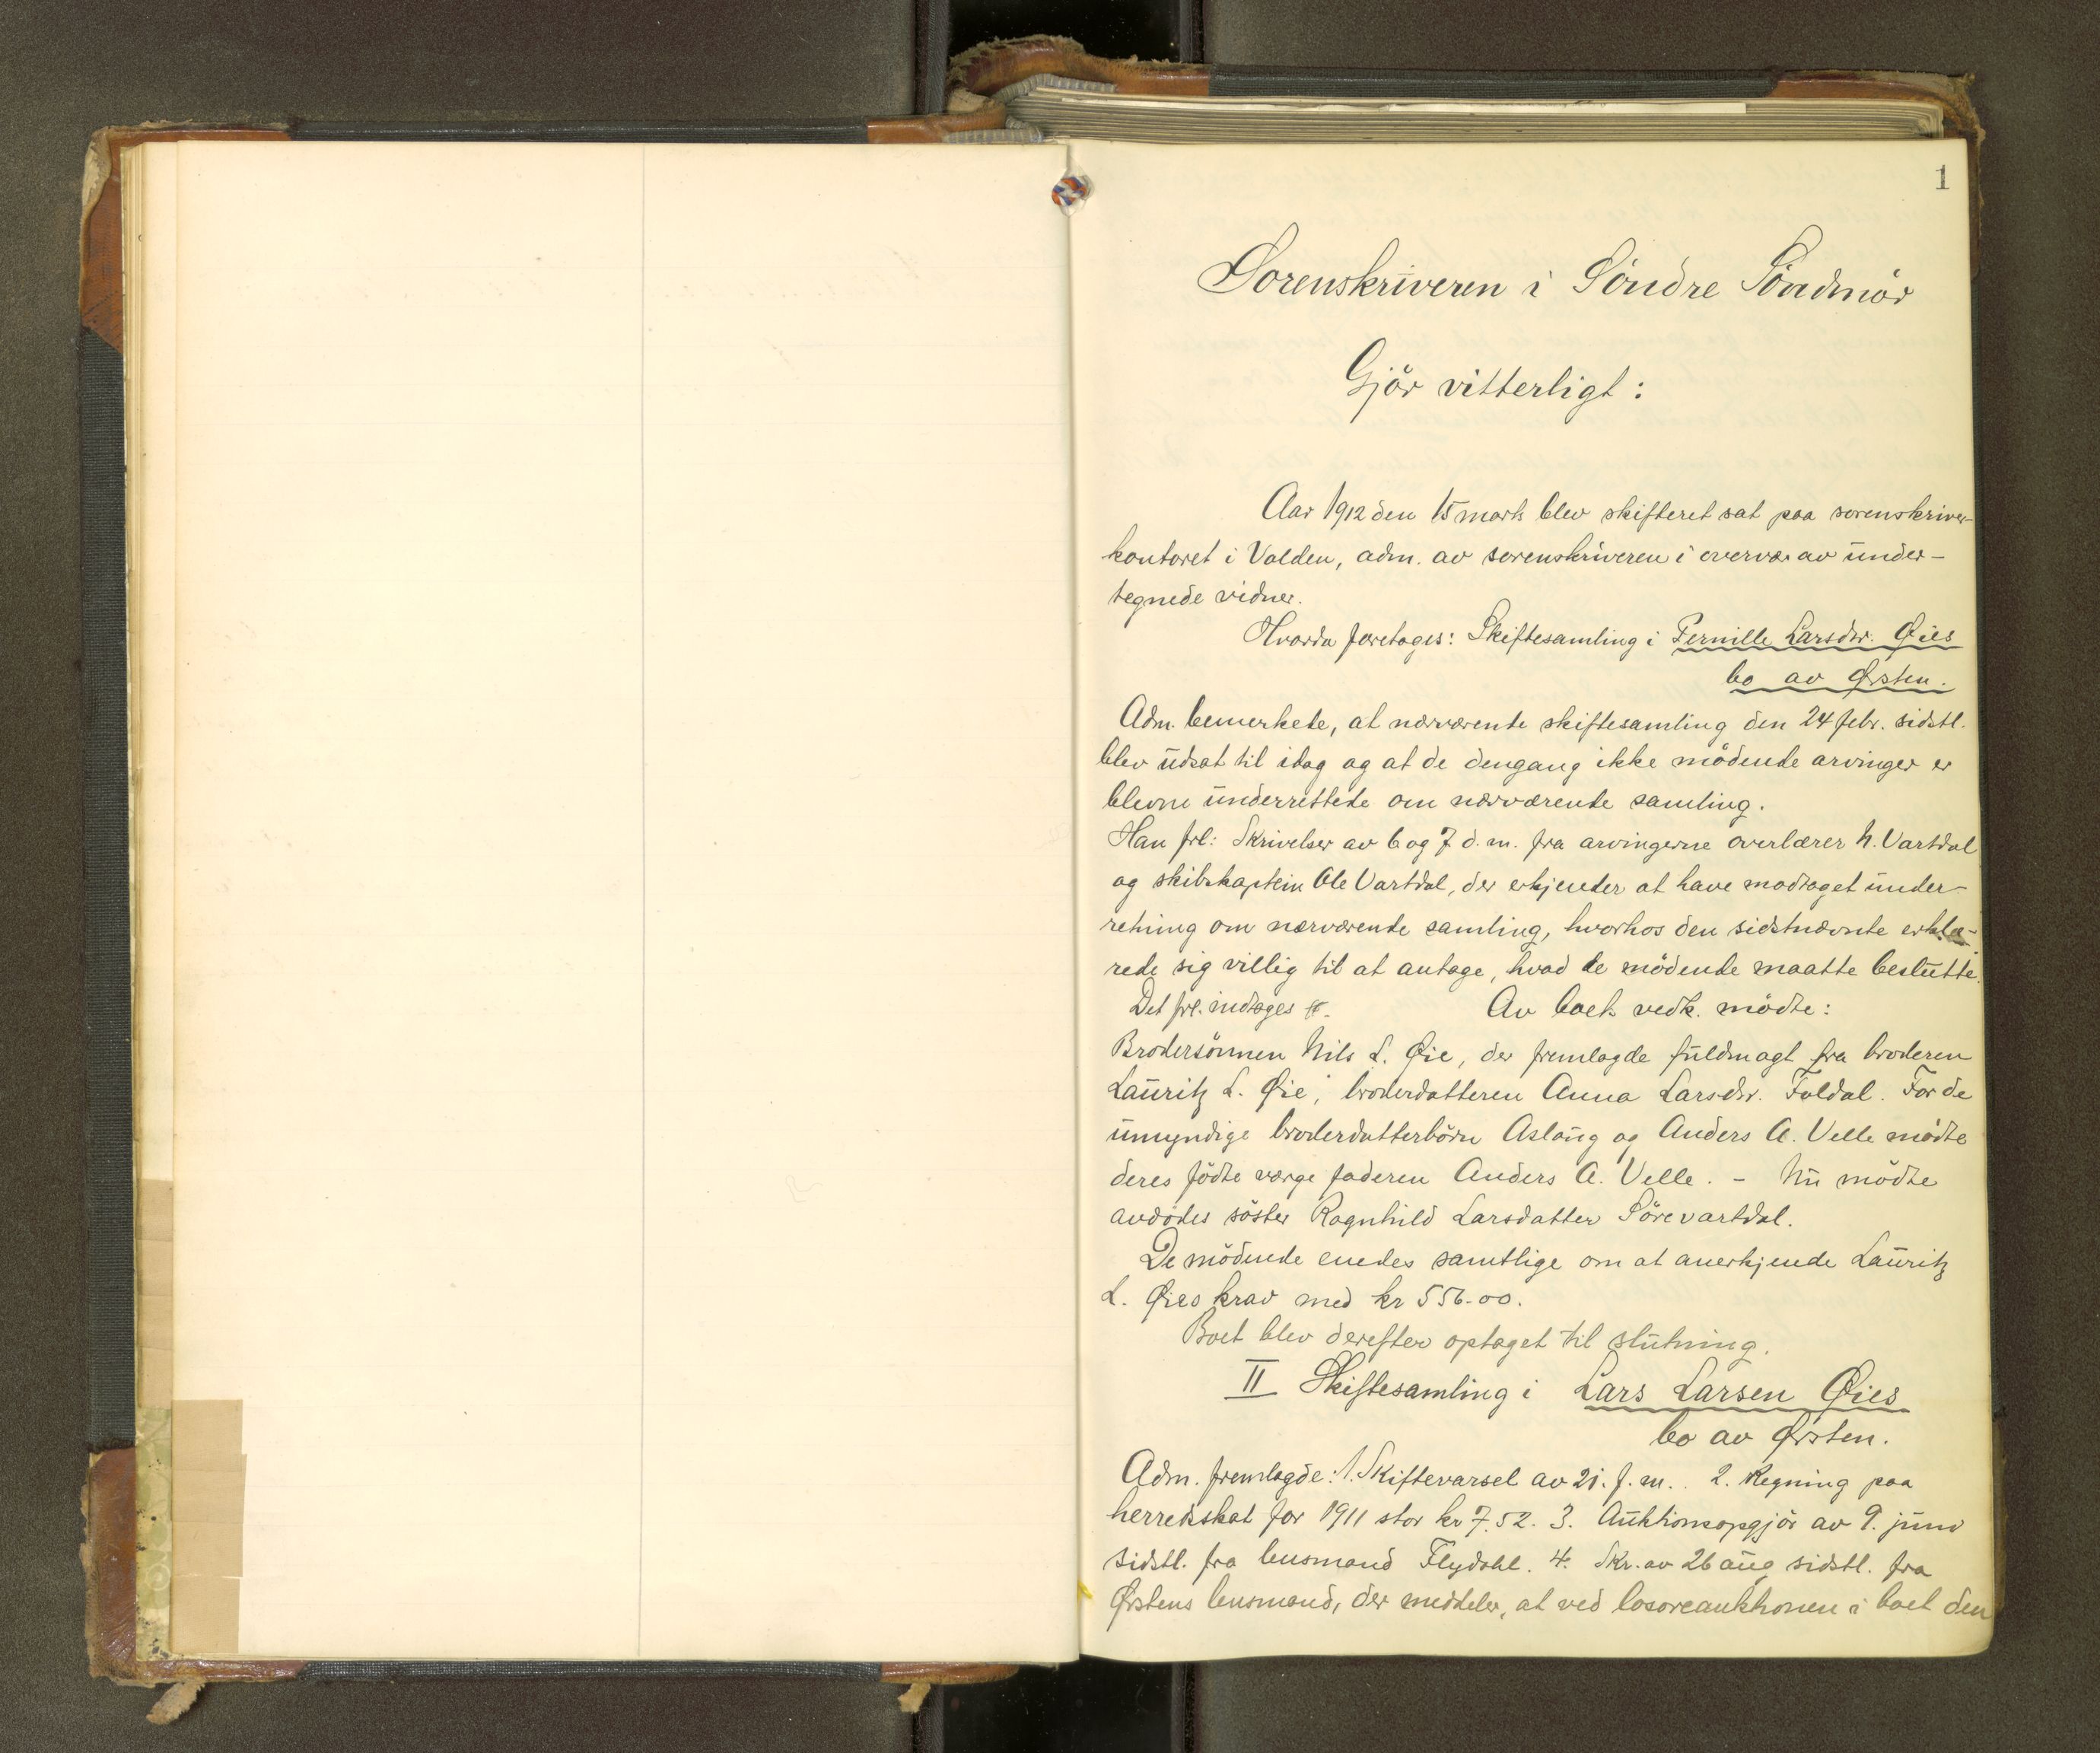 1
Sorenskriveren i Söndre Söndmör
Gjör vitterligt:
Aar 1912 den 15 marts blev skifteret sat paa sorenskriver-
kontoret i Volden, adm. av sorenskriveren i overvær av under-
tegnede vidner.
Hvorda foretoges: Skiftesamling i Pernille Larsdtr. Øies
bo av Ørsten.
Adm. bemerkede, at nærværende skiftesamling den 24 febr. sidstl.
blev udsat til idag og at de dengang ikke mödende arvinger er
blevne underrettede om nærværende samling.
Han frl: Skrivelser av 6 og 7 d. m. fra arvingerne overlærer N. Vartdal
og skibskaptein Ole Vartdal, der erkjender at have modtaget under-
retning om nærværende samling, hvorhos den sidstnævnte erklæ-
rede sig villig til at antage, hvad de mödende maatte beslutte.
Det frl. indtages
Av boets vedk. mödte:
Brodersönnen Nils L. Øie, der fremlagde fuldmagt fra broderen
Lauritz L. Øie, broderdatteren Anna Larsdtr. Foldal. For de
umyndige broderdatterbörn Aslaug og Anders A. Velle mödte
deres födte værge faderen Anders A. Velle. - Nu mödte
avdödes söster Ragnhild Larsdatter Sörevartdal.
De mödende enedes samtlige om at anerkjende Lauritz
L. Øies krav med kr 556-00.
Boet blev derefter optaget til slutning.
II Skiftesamling i Lars Larsen Øies
bo av Ørsten.
Adm. fremlagde: 1. Skiftevarsel av 21. f. m.. 2. Regning paa
herredsskat for 1911 stor kr 7.52. 3. Auktionsopgjör av 9. juni
sidstl. fra lensmand Flydahl. 4. Skr. av 26 aug sidstl. fra
Ørstens lensmand, der meddeler, at ved losoreauktionen i boet den